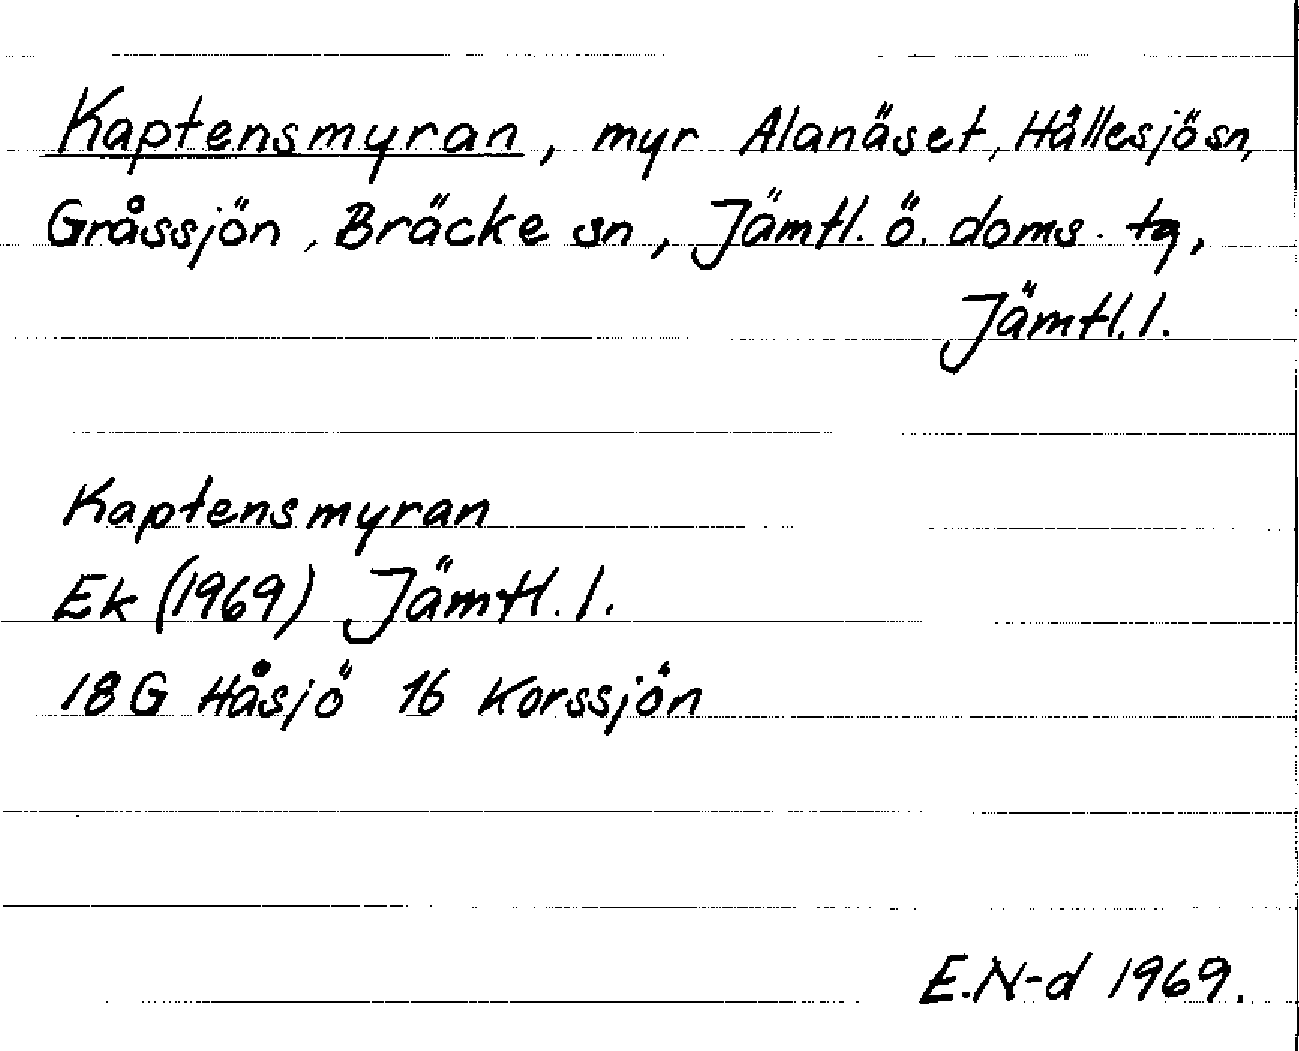 Kaptensmyran, myr Alanäset, Hällesjö sn,
Gråssjön, Bräcke sn, Jämtl. ö. doms. tg,
Jämtl. l.
Kaptensmyran
Ek (1969) Jämtl. l.
18 G Håsjö 16 Korssjön
E.N-d 1969.